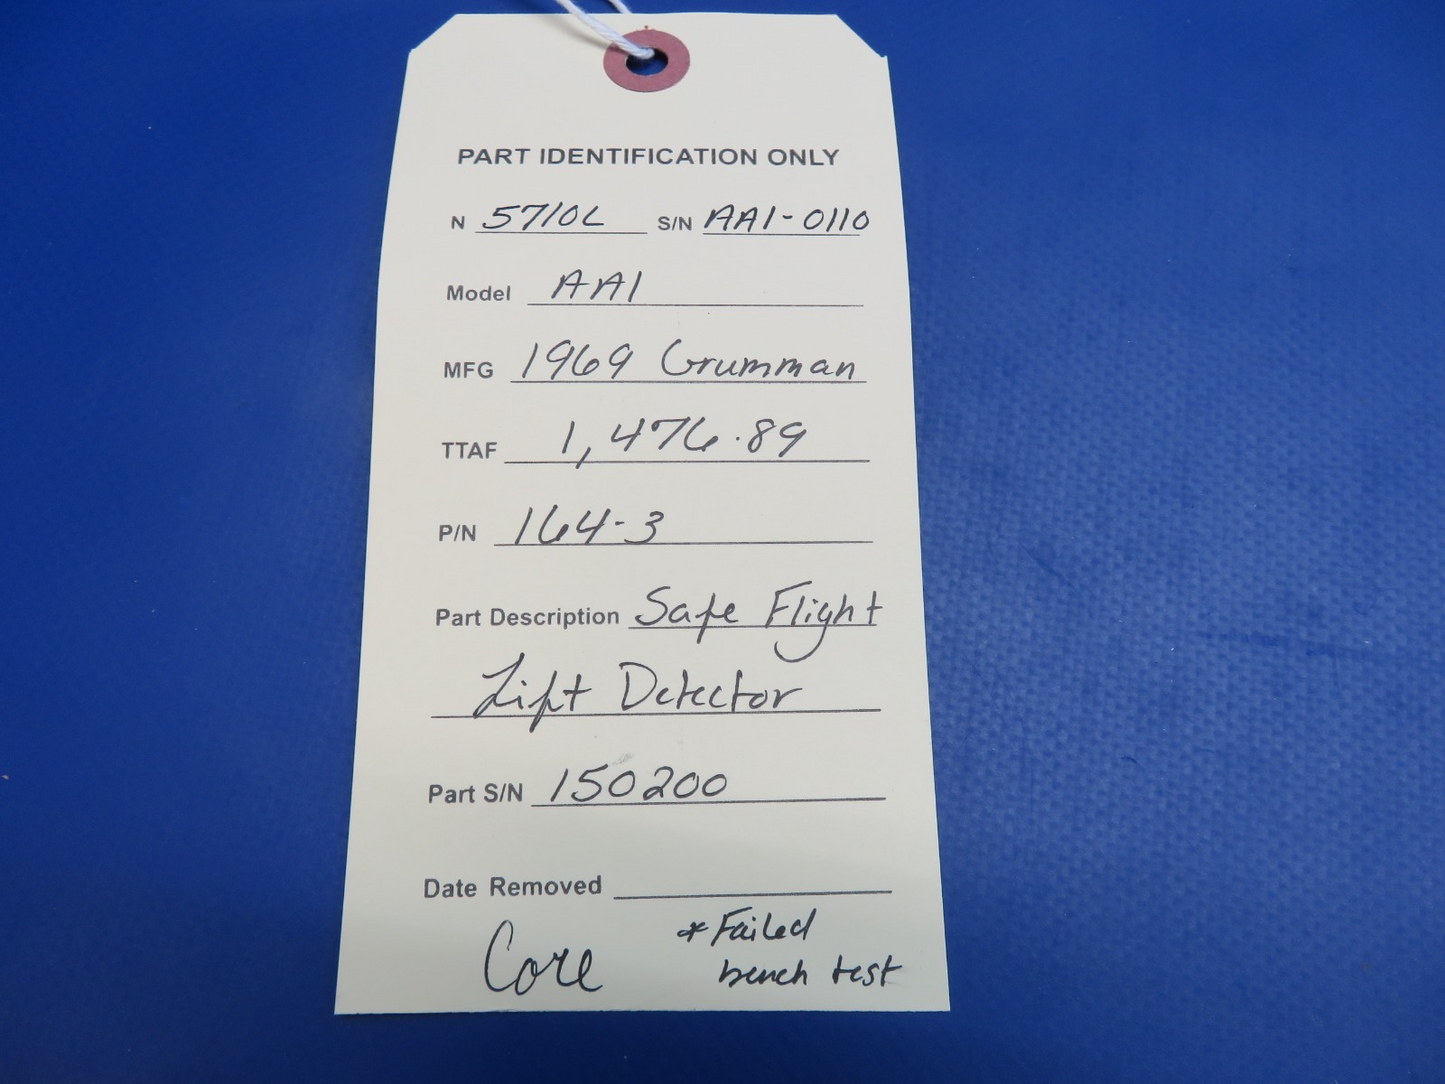 PART IDENTIFICATION ONLY
N 5710L S/N AA1-0110
Model AA1
MFG 1969 Grumman
TTAF 1,476.89
P/N 164-3
Part Description Safe Flight
Lift Detector
Part S/N 150200
Date Removed
Core *Failed
bench test